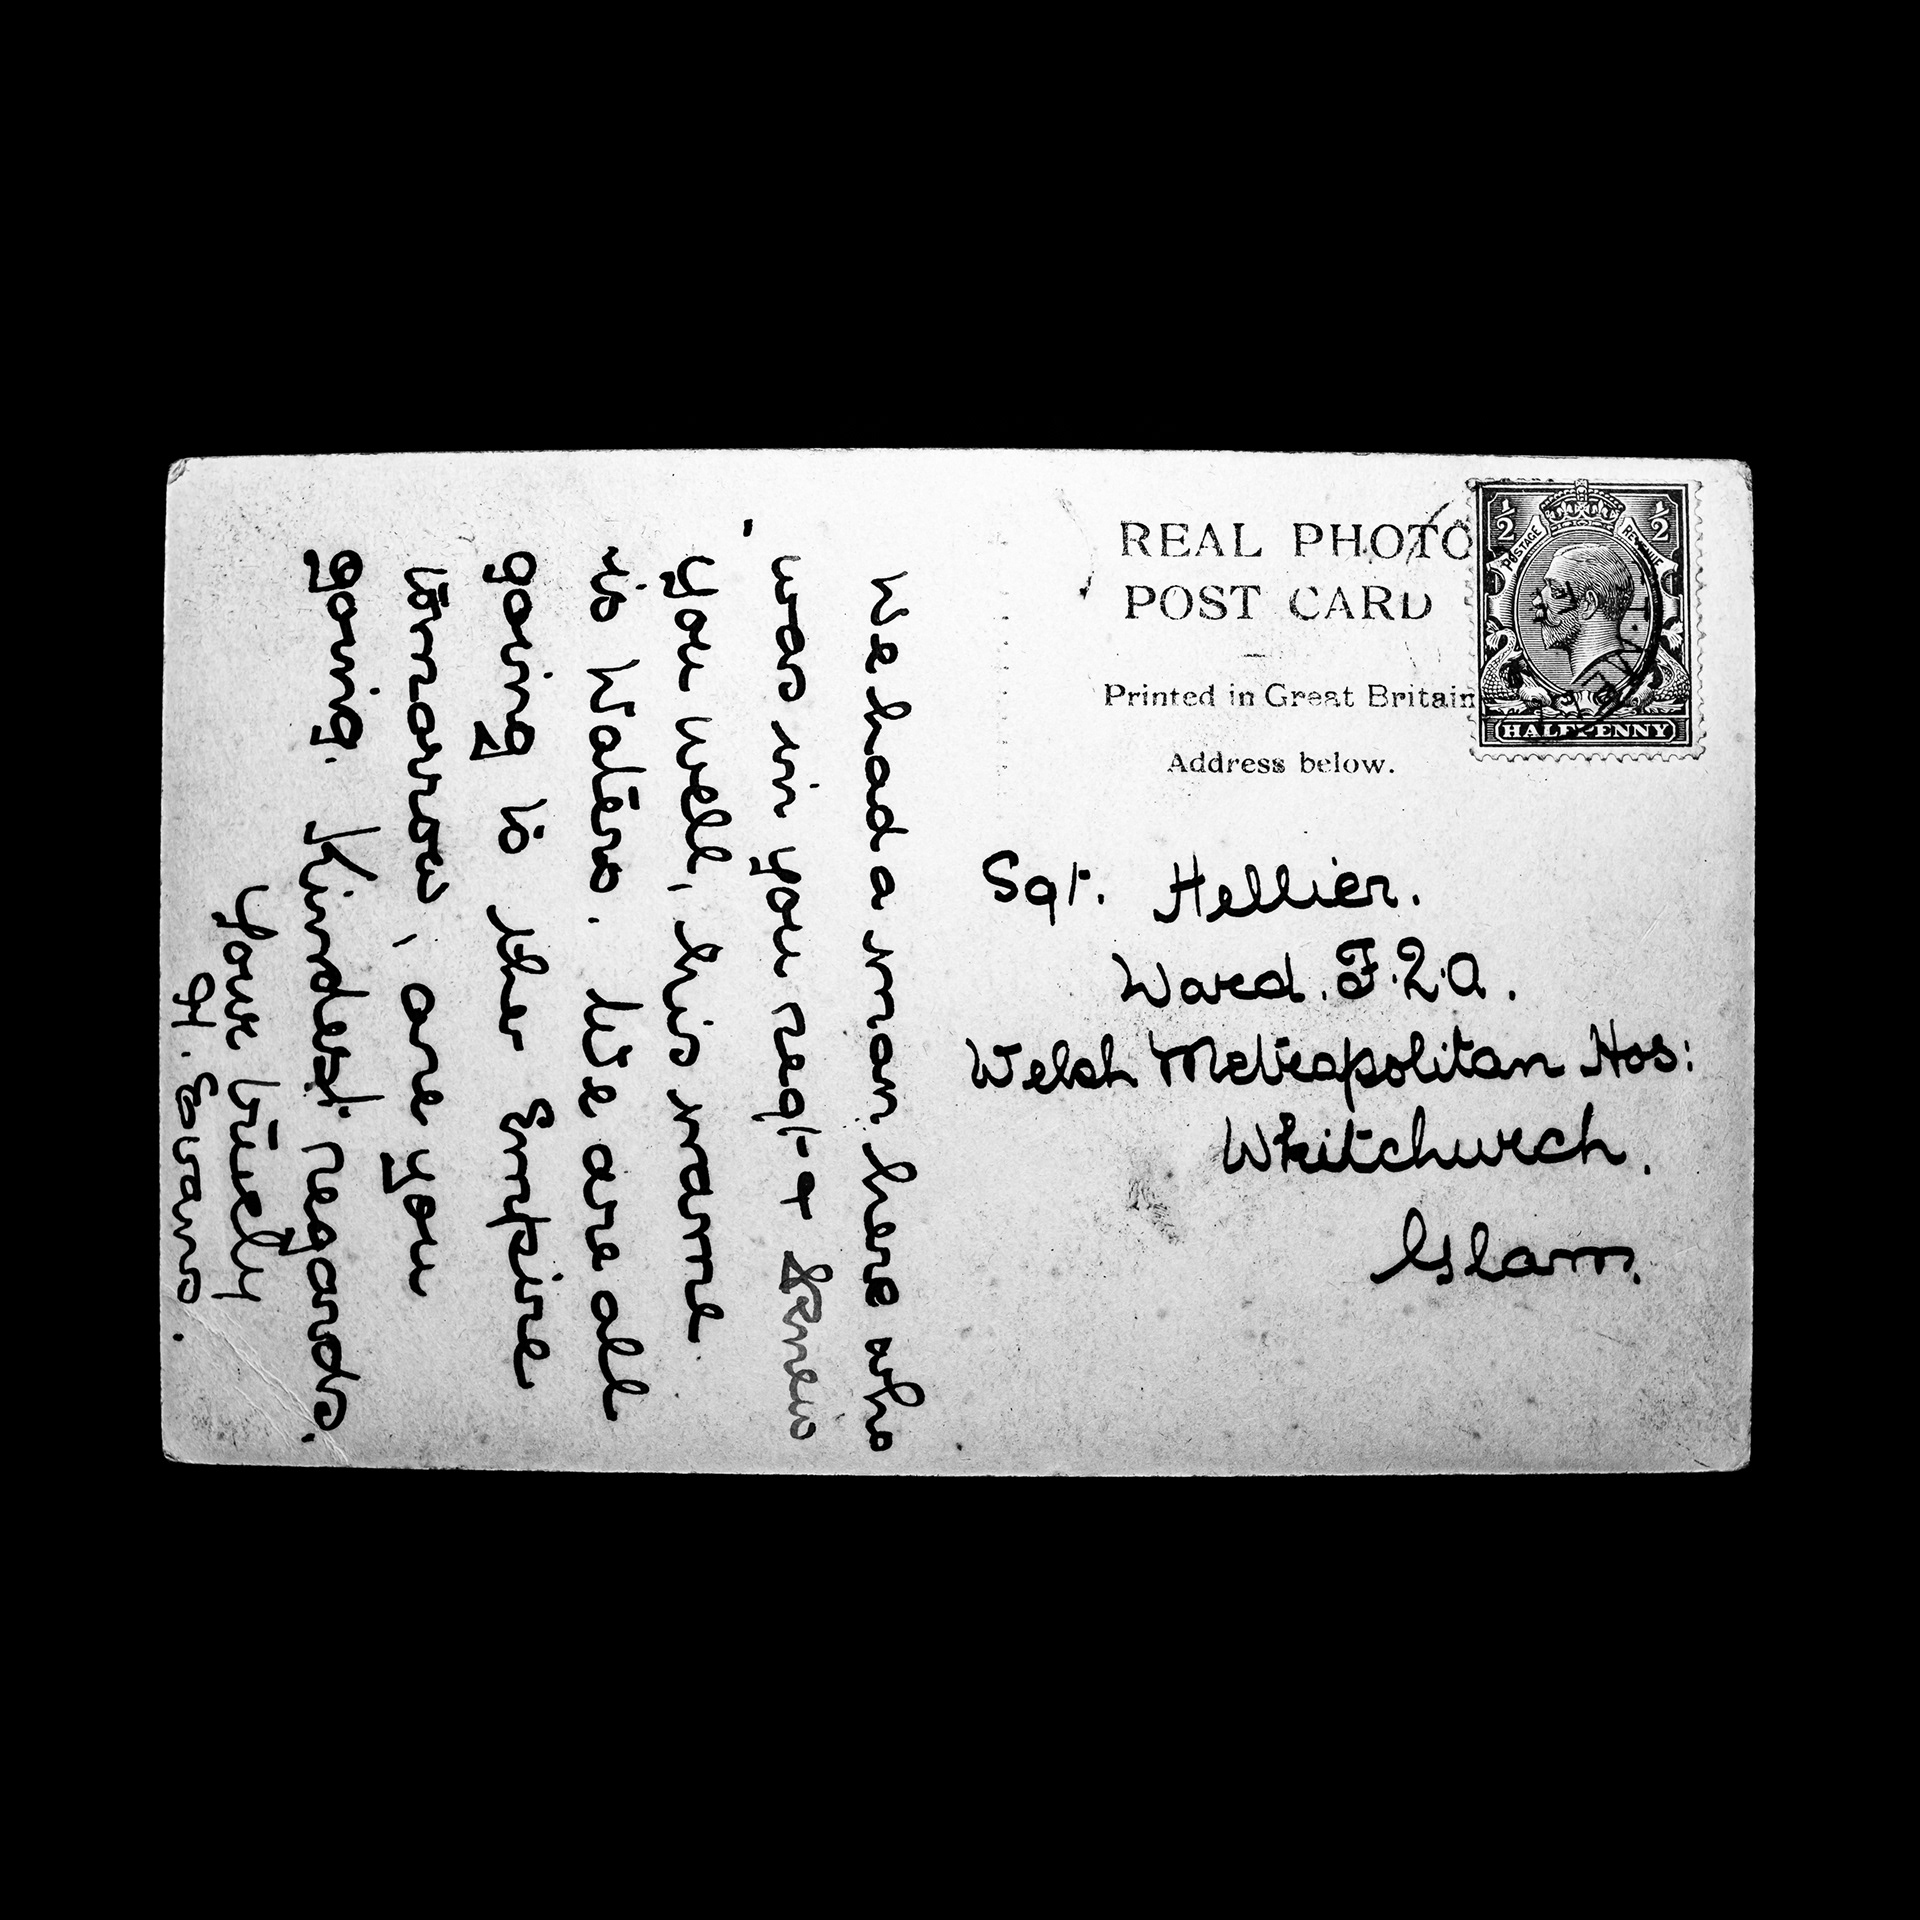 We had a man here who
was in you regt & knew
you well, his name
is Waters. We are all
going to the Empire
tomorrow, are you
going. Kindest regards.
Your truely
H. Evans.
REAL PHOTO
POST CARD
Printed in Great Britain
Address below.
½ ½
POSTAGE REVENUE
HALFPENNY
Sgt. Hellier.
Ward. F.2.A.
Welsh Metropolitan Hos:
Whitchurch.
Glam.